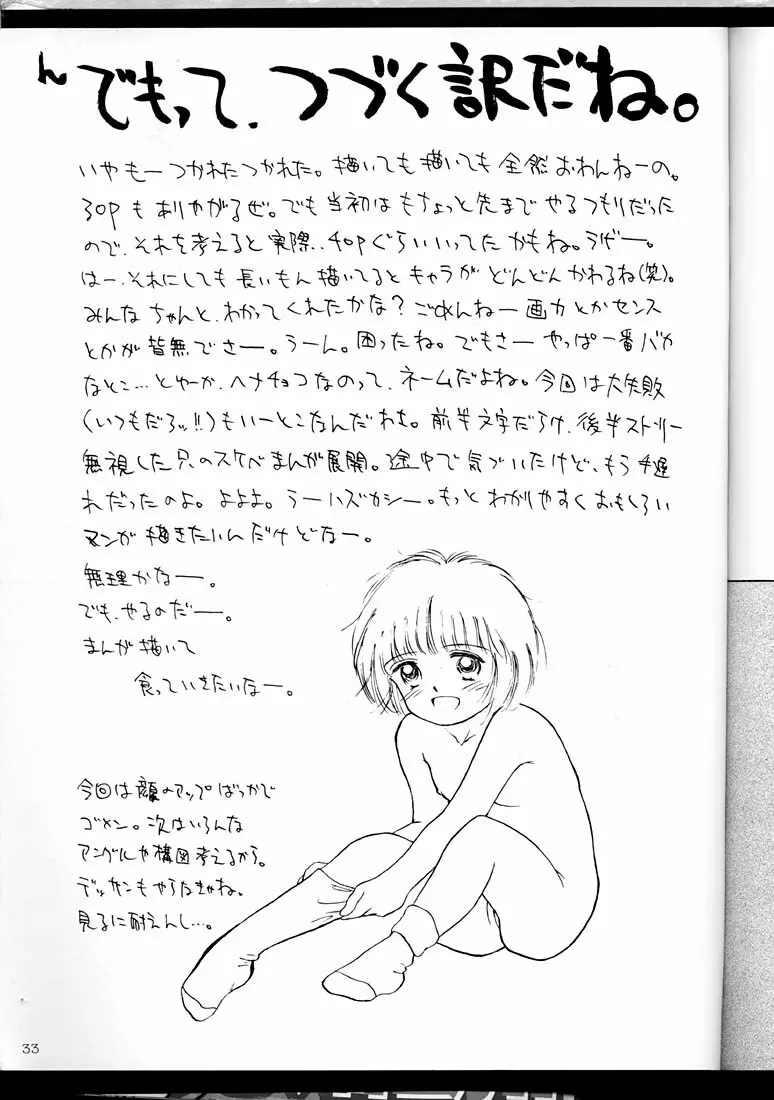 んでもって、つづく訳だね。
いやもーつかれたつかれた。描いても描いても全然おわんねーの。
30Pもありやがるぜ。でも当初はもちょっと先までやるつもりだった
ので、それを考えると実際‥40Pぐらいいってたかもね。うげー。
はー、それにしても長いもん描いてるとキャラがどんどんかわるね(笑)。
みんなちゃんと、わかってくれたかな?ごめんねー画力とかセンス
とかが皆無でさー。うーん。困ったね。でもさーやっぱ一番バカ
なとこ…とゆーか、ヘナチョコなのって、ネームだよね。今回は大失敗
(いつもだろッ!!)もいーとこなんだわよ。前半文字だらけ、後半ストーリー
無視した只のスケベまんが展開。途中で気づいたけど、もう手遅
れだったのよ。よよよ。うーハズカシー。もっとわかりやすくおもしろい
マンガ描きたいんだけどなー。
無理かなー。
でも、やるのだー。
まんが描いて
食っていきたいなー。
今回は顔のアップばっかで
ゴメン。次はいろんな
アングルや構図考えるから。
デッサンもやらなきゃね。
見るに耐えんし…。
33